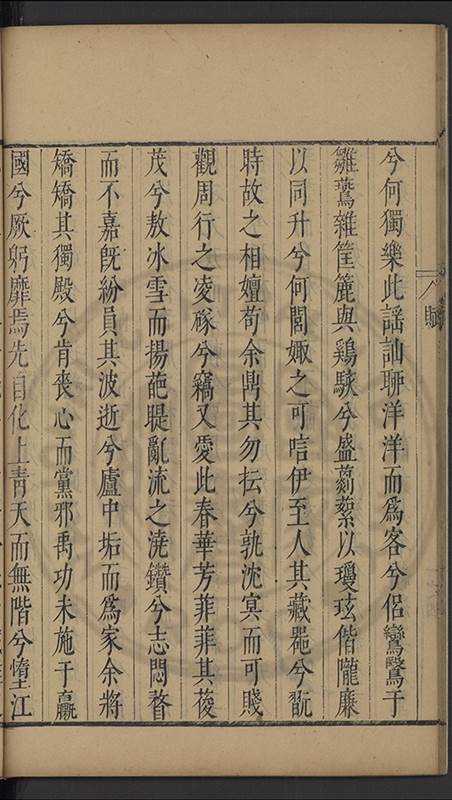 賦
兮何獨樂此謡訕聊洋洋而爲客兮侶鸞鷖于
雛鷟雜筐簏與鷄駭兮盛藭蘩以瓊玹偕隴廉
以同升兮何閭娵之可唁伊至人其藏噐兮翫
時故之相嬗苟余鼎其勿抎兮孰沈冥而可賤
觀周行之凌稼兮竊又愛此春華芳菲菲其葰
茂兮敖冰雪而揚葩睼亂流之澆鑽兮志悶瞀
而不嘉旣紛員其波逝兮廬中垢而爲家余將
矯矯其獨殿兮肯喪心而黨邪禹功未施于羸
國兮厥躬靡焉先自化上青天而無階兮墮江